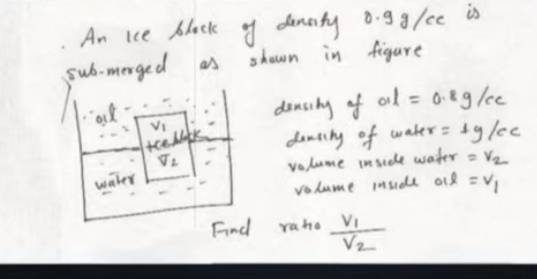 . An ice block of density 0.9 g/cc is
sub-merged as shown in figure
oil
V1
Ice block
V2
water
density of oil = 0.8 g/cc
density of water = 1 g/cc
volume inside water = V2
volume inside oil = V1
Find ratio V1
V2